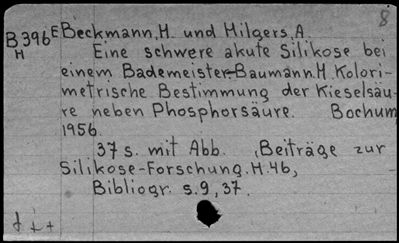 8
B 396 E Beckmann, H. und Hilgers, A.
H
Eine schwere akute Silikose bei
einem Bademeister-Baumann. H. Kolori-
metrische Bestimmung der Kieselsäu-
re neben Phosphorsäure. Bochum
1956.
37 s. mit Abb. (Beiträge zur
Silikose-Forschung. H. 46,
Bibliogr. s. 9, 37.